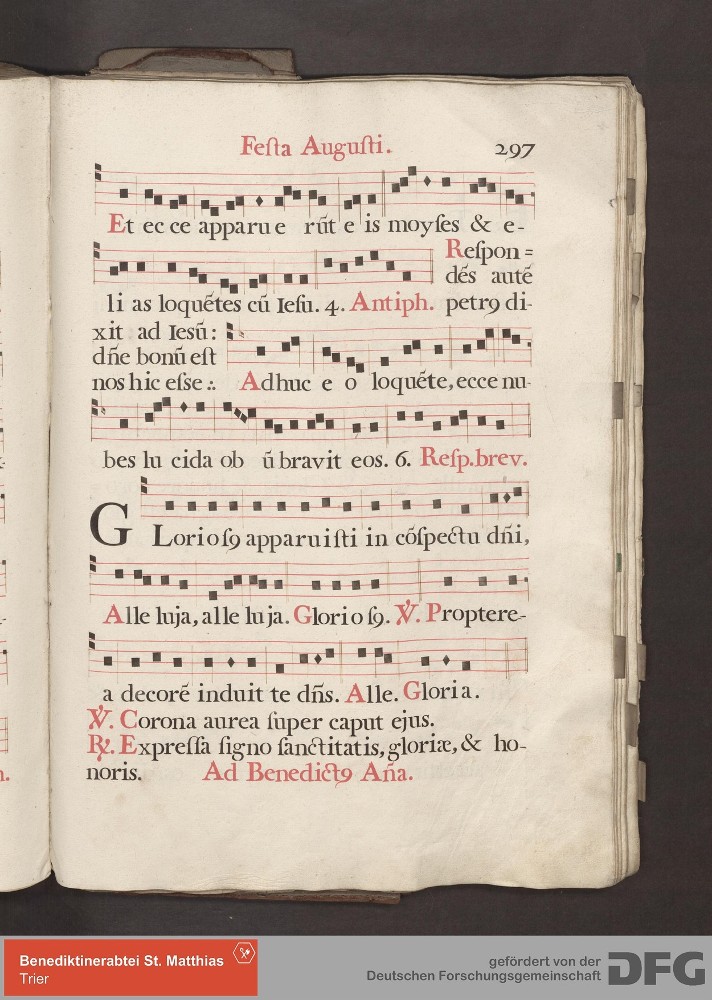 Feſta Auguſti. 297
Et ec ce apparu e rūt e is moyſes & e-
Reſpon=
dēs autē
li as loquētes cū Ieſu. 4. Antiph. petrꝯ di-
xit ad Iesū:
dñe bonū eſt
nos hic eſse :. Adhuc e o loquēte, ecce nu-
bes lu cida ob ūbravit eos. 6. Reſp. brev.
GLorioſꝯ apparuiſti in cōſpectu dñi,
Alle luja, alle lu ja. Glorioſꝯ. ℣. Proptere-
a decorē induit te dñs. Alle. Gloria.
℣. Corona aurea ſuper caput ejus.
℟. Expreſſa ſigno ſanctitatis, gloriæ, & ho-
noris. Ad Benedictꝯ Aña.
Benediktinerabtei St. Matthias
Trier
gefördert von der
Deutschen Forschungsgemeinschaft
DFG